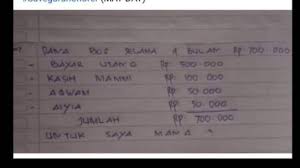 DANA BOS SELAMA 1 BULAN Rp 700.000
- BAYAR UTANG Rp 500.000
- KASIH MAMMI Rp 100.000
- AQWAM Rp 50.000
- AIYIA Rp 50.000
JUMLAH Rp 700.000
UNTUK SAYA MANA ?